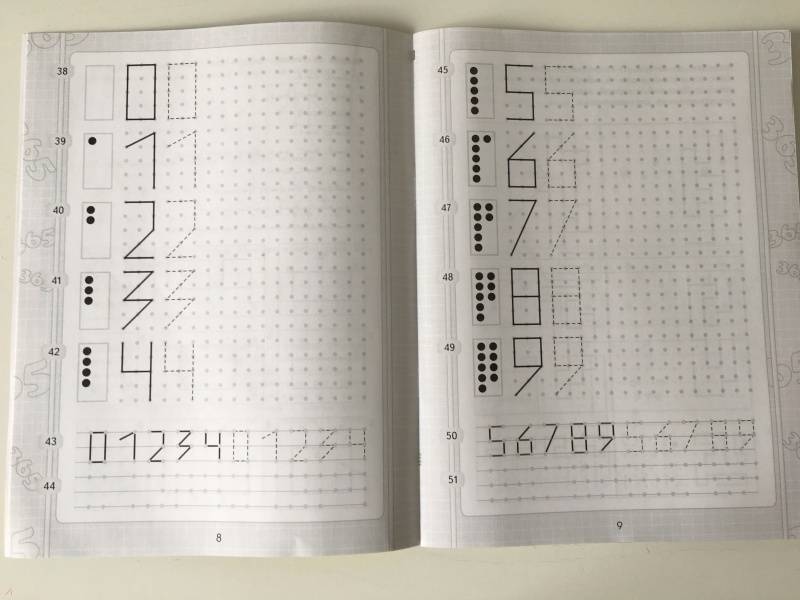 38 0 0
39 1 1
40 2 2
41 3 3
42 4 4
43 0 1 2 3 4 0 1 2 3 4
44
8
45 5 5
46 6 6
47 7 7
48 8 8
49 9 9
50 5 6 7 8 9 5 6 7 8 9
51
9